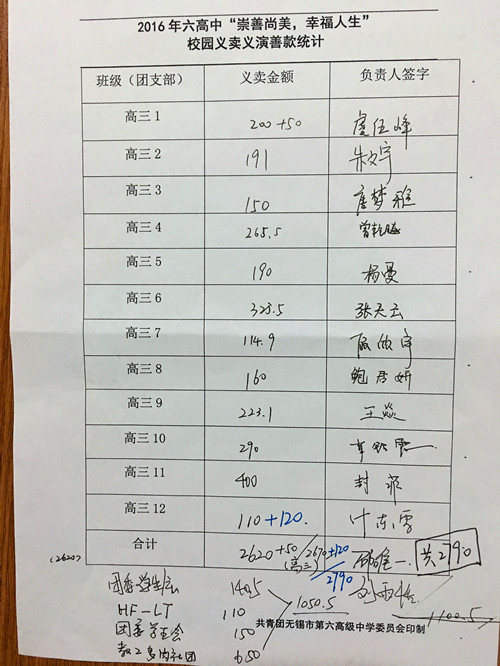 2016年六高中“崇善尚美，幸福人生”
校园义卖义演善款统计
班级（团支部） 义卖金额 负责人签字
高三1 200+50 虞伍峰
高三2 191 朱文宇
高三3 150 唐梦雅
高三4 265.5
高三5 190 杨曼
高三6 323.5 张天云
高三7 114.9
高三8 160 鲍君妍
高三9 223.1 王焱
高三10 290
高三11 400 封菲
高三12 110+120. 叶东雪
(2620) 合计 2620+50 (高三) 2670+120 2790 共2790
团委学生会 140.5
HF-LT 110 1050.5 1100.5
团委学生会 150
共青团无锡市第六高级中学委员会印制
教工室内社团 650